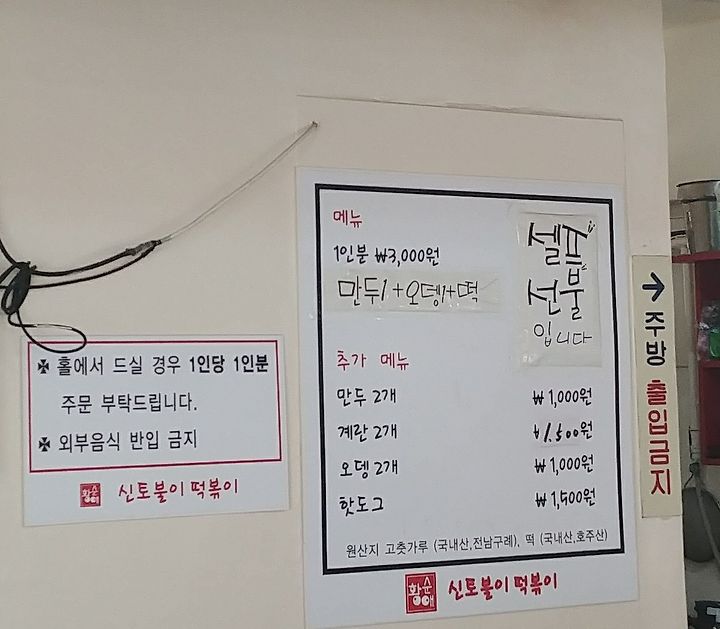 메뉴
1인분 ₩3,000원
만두1+오뎅1+떡
셀프
선불
입니다
추가 메뉴
만두 2개 ₩1,000원
계란 2개 ₩1,500원
오뎅 2개 ₩1,000원
핫도그 ₩1,500원
원산지 고춧가루 (국내산,전남구례), 떡 (국내산,호주산)
황순애 신토불이 떡볶이
✠ 홀에서 드실 경우 1인당 1인분
주문 부탁드립니다.
✠ 외부음식 반입 금지
신토불이 떡볶이
→ 주방 출입금지